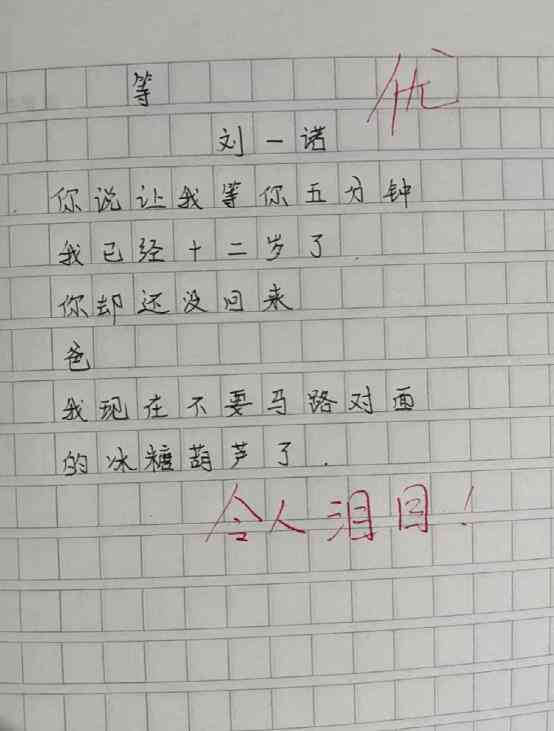 等
优
刘一诺
你说让我等你五分钟
我已经十二岁了
你却还没回来
爸
我现在不要马路对面
的冰糖葫芦了.
令人泪目!